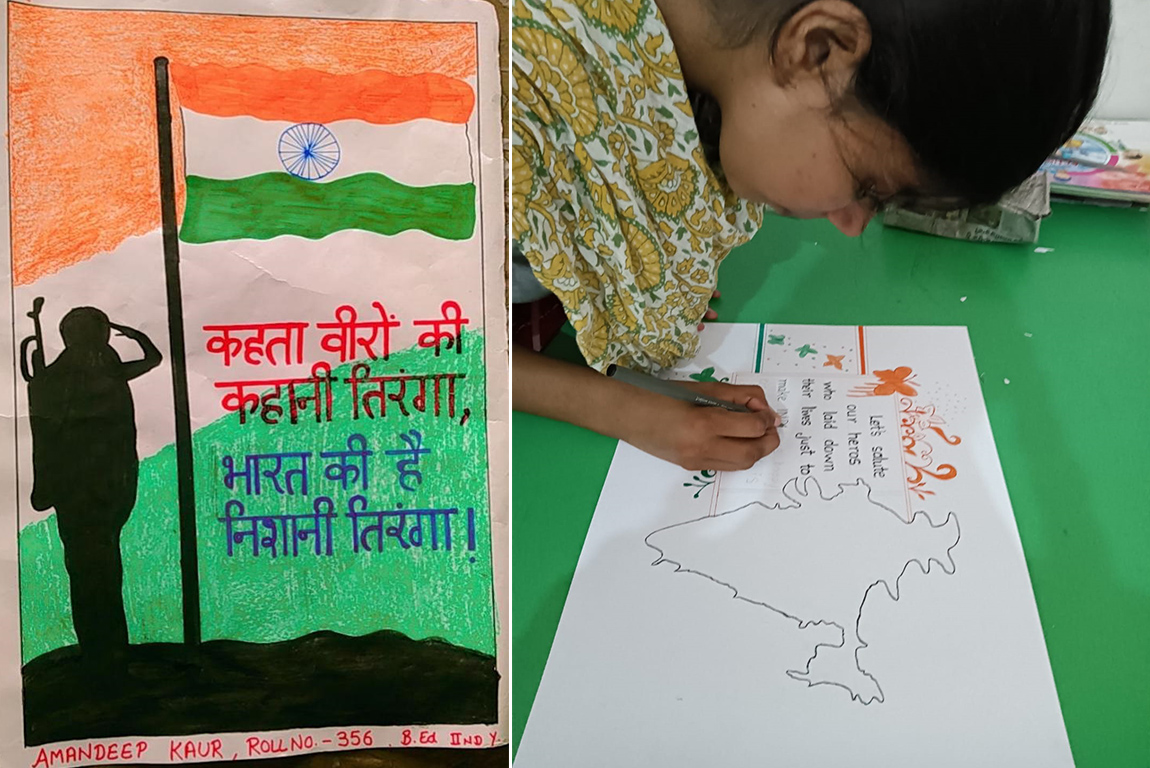 कहता वीरों की
कहानी तिरंगा,
भारत की है
निशानी तिरंगा!
AMANDEEP KAUR, ROLL NO.-356 B.Ed IIND Y.
Let's salute
our heros
who laid down
their lives just to
make